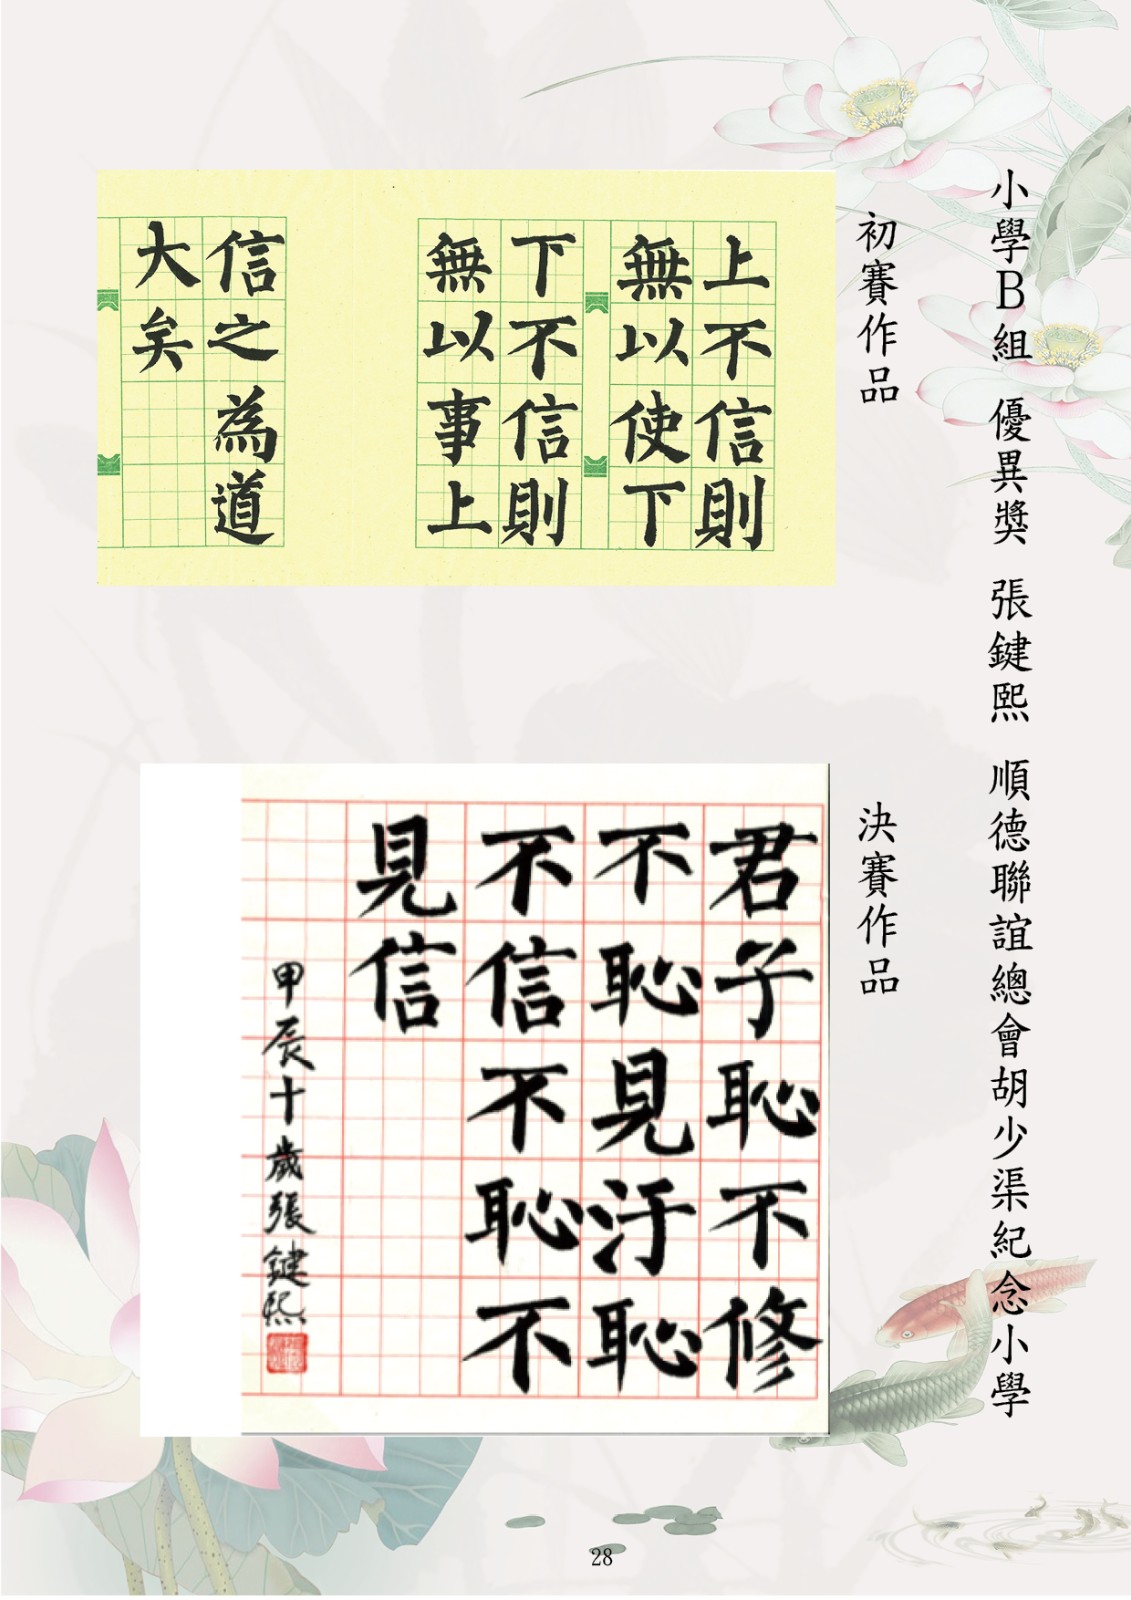 小學B組 優異獎 張鍵熙 順德聯誼總會胡少渠紀念小學
初賽作品
上不信則
無以使下
下不信則
無以事上
信之為道
大矣
決賽作品
君子恥不修
不恥見汙恥
不信不恥不
見信
甲辰十歲張鍵熙
28